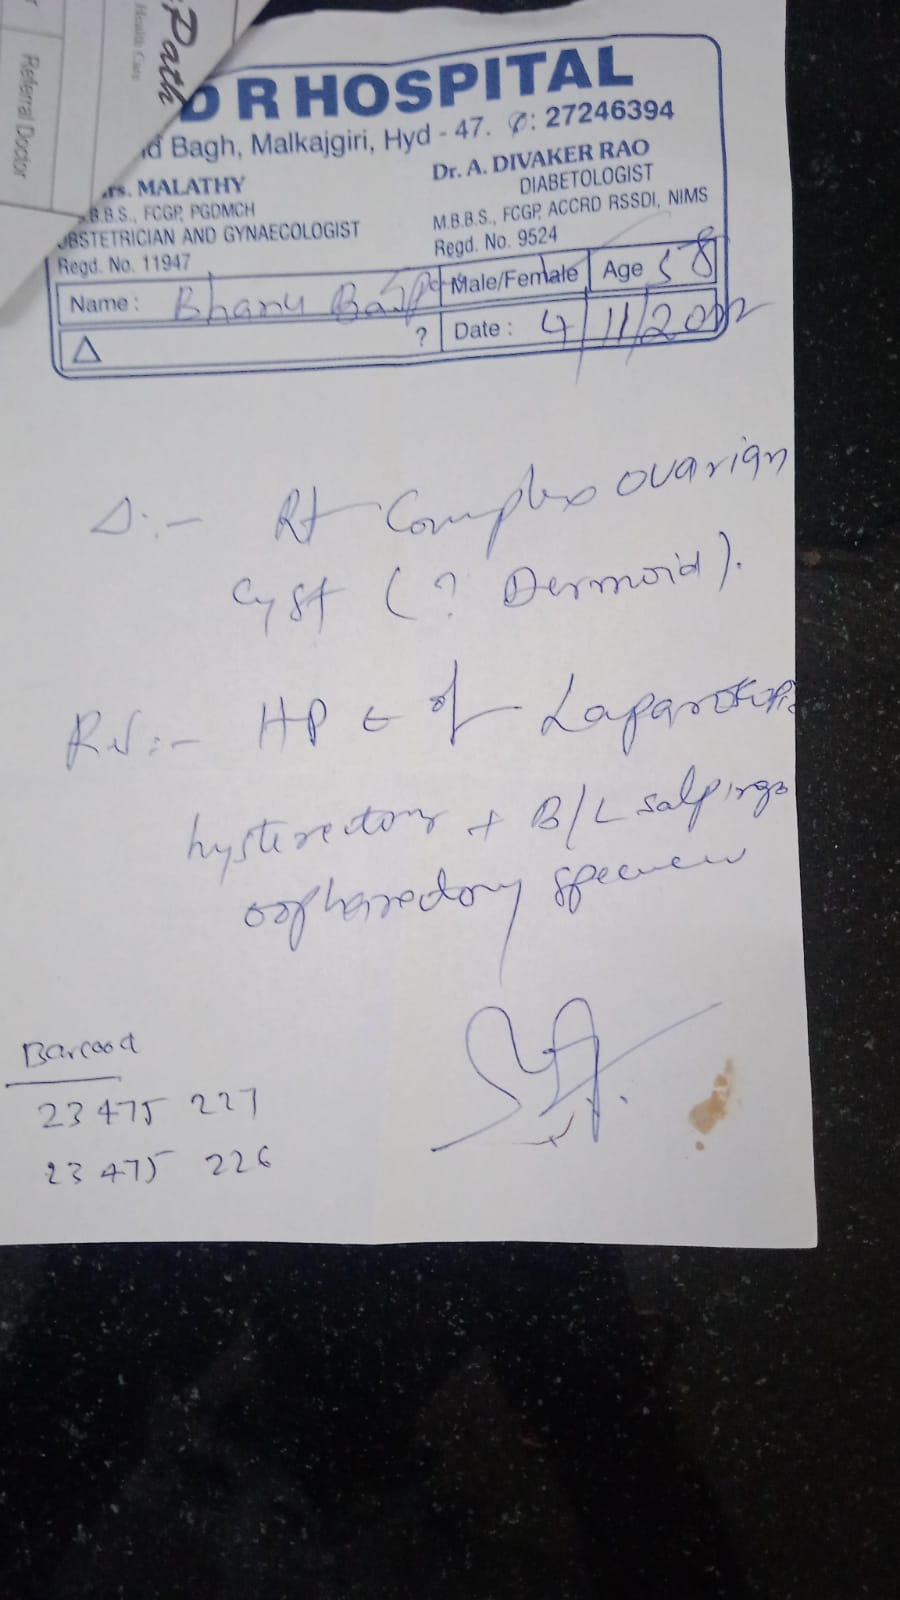 Path
Health Care
Referral Doctor
D R HOSPITAL
Bagh, Malkajgiri, Hyd - 47. ✆: 27246394
rs. MALATHY
B.B.S., FCGP, PGDMCH
OBSTETRICIAN AND GYNAECOLOGIST
Regd. No. 11947
Dr. A. DIVAKER RAO
DIABETOLOGIST
M.B.B.S., FCGP, ACCRD RSSDI, NIMS
Regd. No. 9524
Name : Bhanu Male/Female Age 58
Δ ? Date : 4/11/2022
Δ:- Rt Complex ovarian
Cyst (? Dermoid).
HPE of
hysterectomy + B/L salpingo
oophorectomy specimen
Barcood
23475 227
23475 226